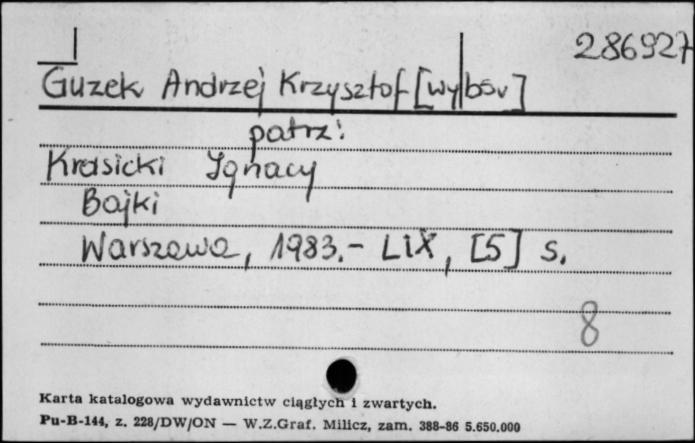 286927
Guzek Andrzej Krzysztof [wybór]
patrz:
Krasicki Ignacy
Bajki
Warszawa, 1983.- LIX, [5] s.
8
Karta katalogowa wydawnictw ciągłych i zwartych.
Pu-B-144, z. 228/DW/ON — W.Z.Graf. Milicz, zam. 388-86 5.650.000